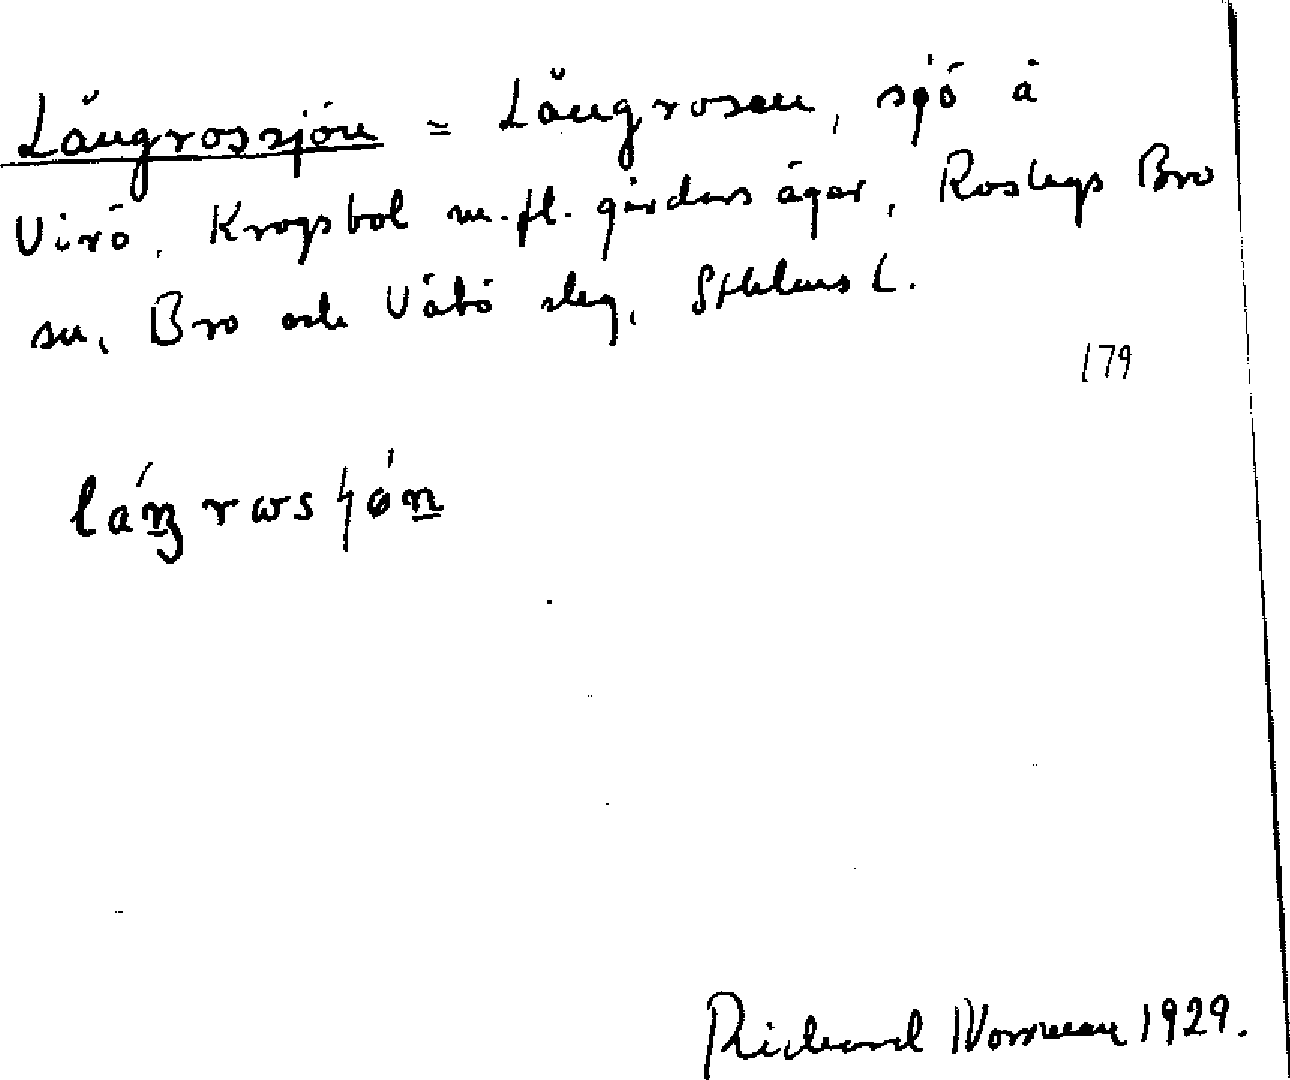 Långrossjön = Långrosen, sjö å
Virö, Krogsbol m.fl. gårdars ägor, Roslags Bro
sn, Bro och Vätö slg, Sthlms L.
179
Richard Norrman 1929.